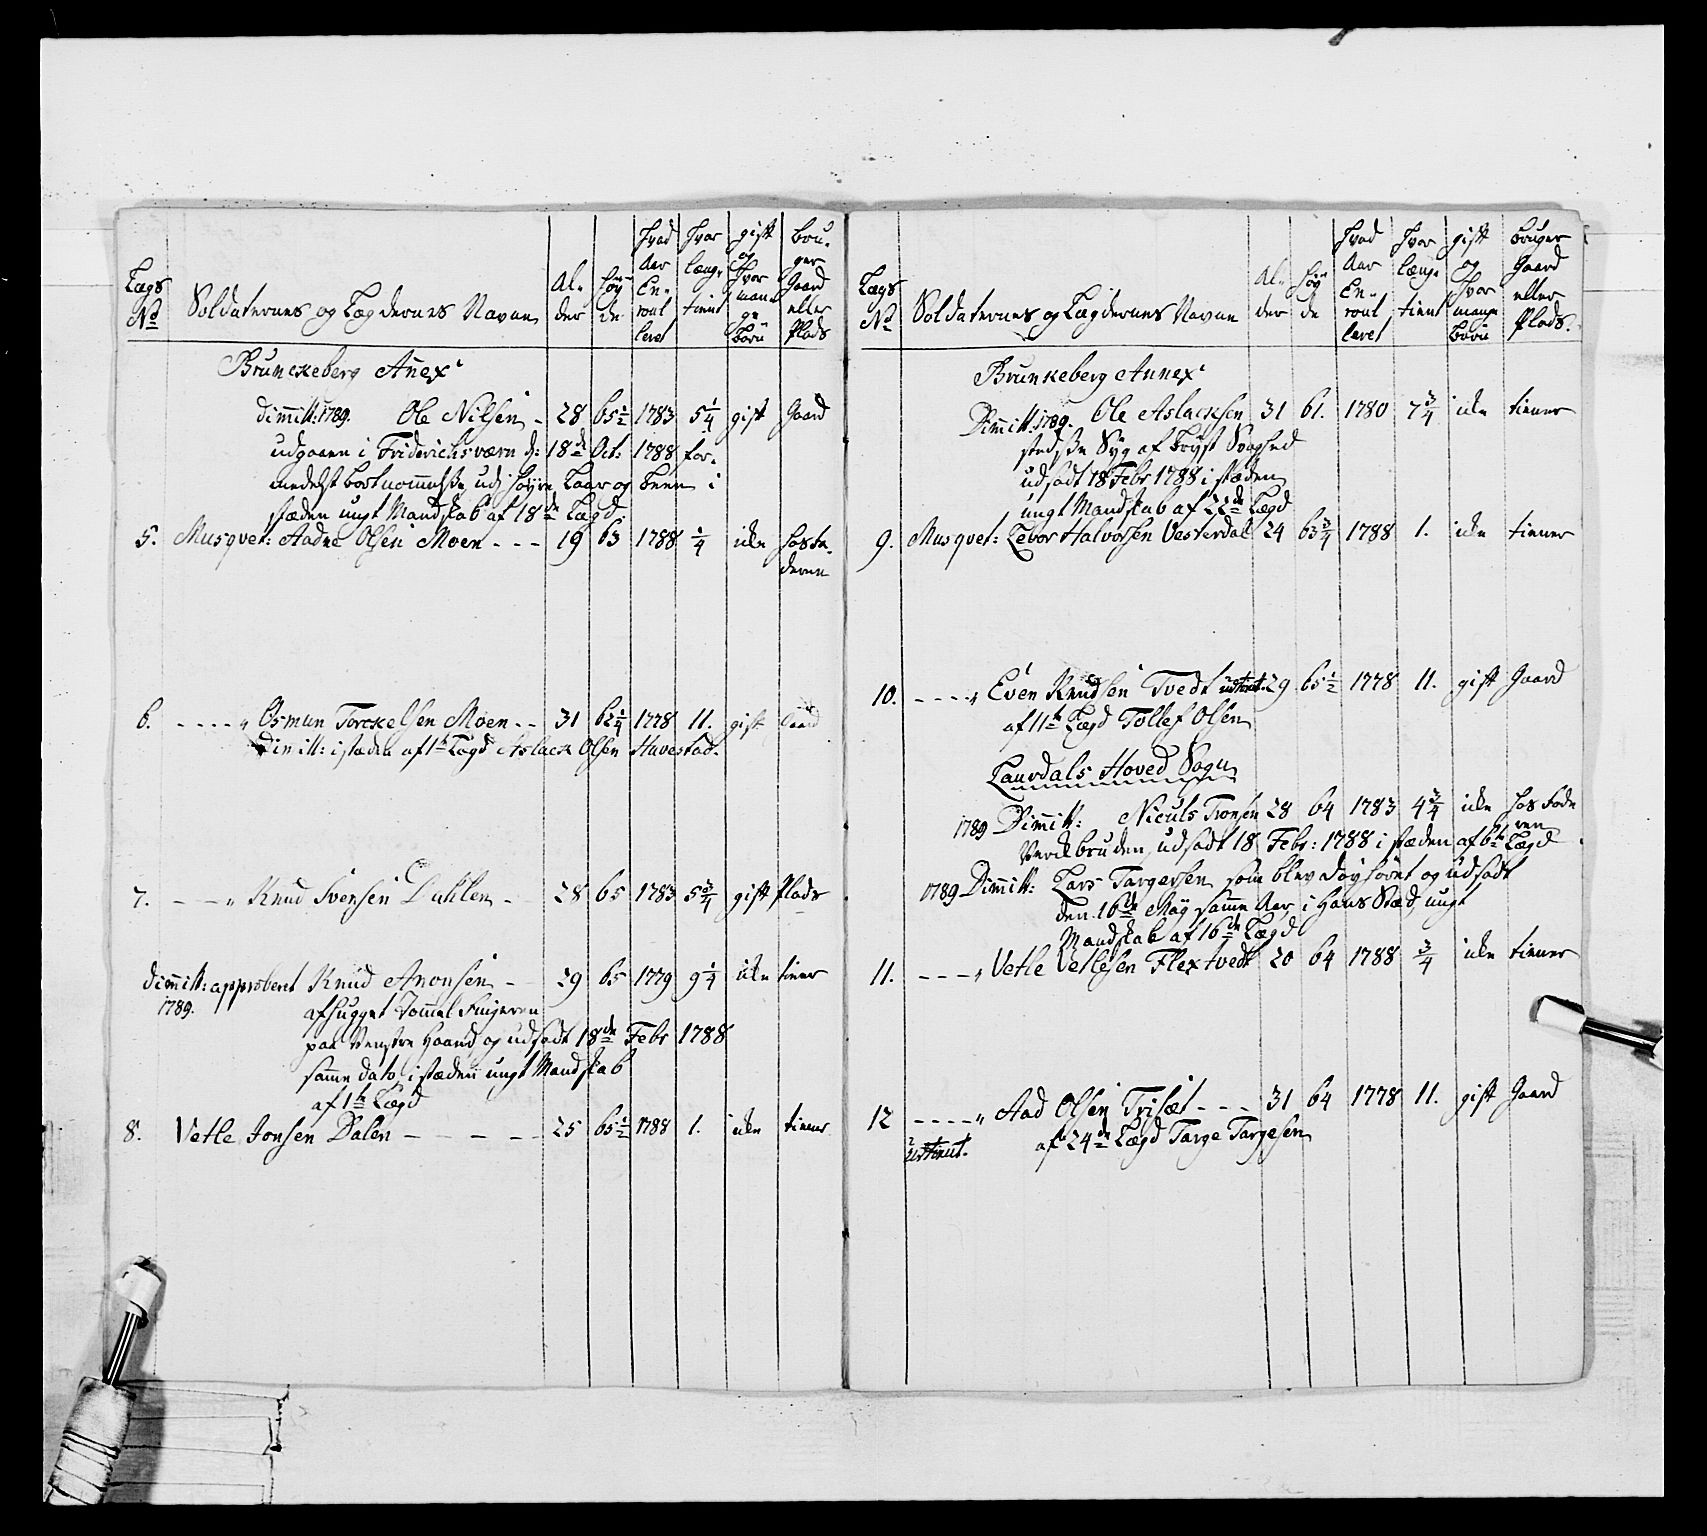 Lægs No | Soldaternes og Lægdernes Navne | Al- der | Høy de | Hvad Aar En- roul leret | Hvor læng- tient | gift og Hvor man- ge Børn | bru- ger Gaard eller Plads
Brunckeberg Annex
Dimitt: 1789. Ole Nilsen - 28 65½ 1783 5¼ gift Gaard
udgaaen i Friderichsværn d: 18de Oct: 1788 for-
medelst bortkommelse udj høyre Laar og Been i
stæden ungt Mandskab af 18de Lægd
5. Musquet: Aadne Olsen Moen - - - 19 63 1788 ¼ ikke hos Fa-
deren
6. - - - - " Osmun Torckelsen Moen - - 31 62¼ 1778 11. gift Gaard
Dimitt: i stæden af 1te Lægd Aslack Olsen Havestad.
7. - - - " Knud Svensen Dahlen - 28 65 1783 5¾ gift Plads
Dimitt: approberet Knud Anonsen - 29 65 1779 9¼ ikke tiener
1789. afhugget Tommel Fingeren
paa Venstre Haand og udsadt 18de Febr 1788
samme dato i stæden ungt Mandskab
af 1te Lægd
8. Vetle Jonsen Dalen - - - - - 25 65½ 1788 1. ikke tiener
Lægs No | Soldaternes og Lægdernes Navne | Al- der | Høy de | Hvad Aar En- roul leret | Hvor læng- tient | gift og Hvor mange Børn | bruger Gaard eller Plads.
Brunkeberg Annex
Dimitt: 1789. Ole Aslacksen 31 61. 1780 7¾ ikke tiener
stedse Syg af Bryst Svaghed
udsadt 18 Febr 1788 i stæden
ungt Mandskab af 22de Lægd
9. Musquet: Levor Halvorsen Vesterdal 24 63¾ 1788 1. ikke tiener
10. - - - - " Even Knudsen Tvedt udtient. 29 65½ 1778 11. gift Gaard
af 11te Lægd Tollef Olsen
Laurdals Hoved Sogn
1789 Dimitt: Niculs Tronsen 28 64 1783 4¾ ikke hos Fade
ren
Verckbruden, udsadt 18 Febr: 1788 i stæden af 6te Lægd
1789 Dimitt: Lars Targersen som blev døvhøret og udsadt
den 16de May samme Aar, i Hans Sted, ungt
Mandskab af 16de Lægd
11. - - - - " Vetle Vetlesen Flextvedt 20 64 1788 ¾ ikke tiener
12 - - - - " Aad Olsen Trisæt - - - 31 64 1778 11. gift Gaard
udtient. af 24de Lægd Targe Targesen